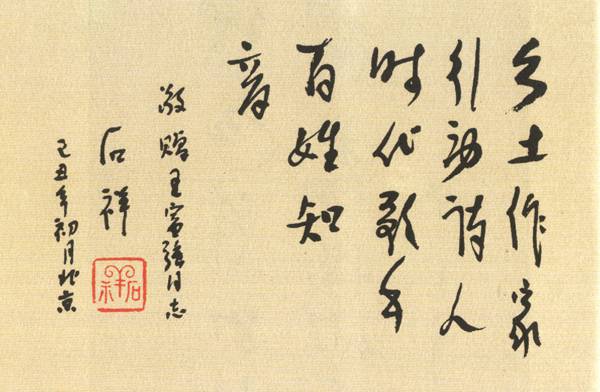 乡土作家
引动诗人
时代歌手
百姓知
音
敬赠王宝强同志
石祥
己丑年初月北京
石祥